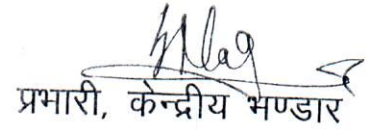 प्रभारी, केन्द्रीय भण्डार